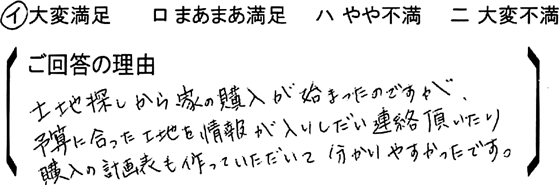 イ 大変満足 ロ まあまあ満足 ハ やや不満 ニ 大変不満
ご回答の理由
土地探しから家の購入が始まったのですが、
予算に合った土地を情報が入りしだい連絡頂いたり
購入の計画表も作っていただいて分かりやすかったです。